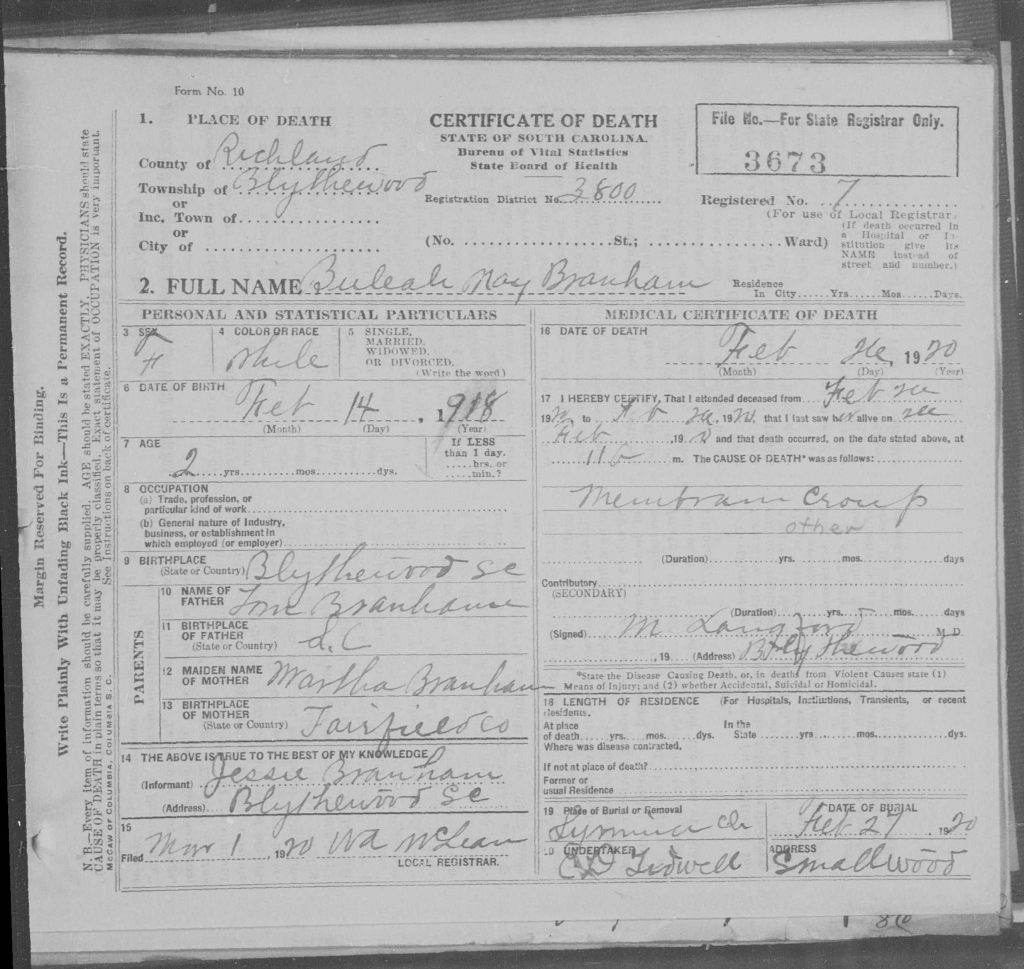 Form No. 10
1. PLACE OF DEATH
County of Richland
Township of Blythewood
or
Inc. Town of
or
City of
CERTIFICATE OF DEATH
STATE OF SOUTH CAROLINA.
Bureau of Vital Statistics
State Board of Health
Registration District No. 3800
(No. St.; Ward)
File No.—For State Registrar Only.
3673
Registered No. 7
(For use of Local Registrar.)
(If death occurred in
a Hospital or In-
stitution give its
NAME instead of
street and number.)
2. FULL NAME Buleah May Branham
Residence
In City Yrs. Mos. Days.
PERSONAL AND STATISTICAL PARTICULARS
3 SEX
F
4 COLOR OR RACE
White
5 SINGLE,
MARRIED,
WIDOWED,
OR DIVORCED.
(Write the word)
6 DATE OF BIRTH
Feb 14, 1918
(Month) (Day) (Year)
7 AGE
2 yrs. mos. dys.
If LESS
than 1 day.
hrs. or
min.?
8 OCCUPATION
(a) Trade, profession, or
particular kind of work
(b) General nature of Industry,
business, or establishment in
which employed (or employer)
9 BIRTHPLACE
(State or Country) Blythewood SC
PARENTS
10 NAME OF
FATHER Branham
11 BIRTHPLACE
OF FATHER
(State or Country)
12 MAIDEN NAME
OF MOTHER Martha Branham
13 BIRTHPLACE
OF MOTHER
(State or Country) Fairfield Co
14 THE ABOVE IS TRUE TO THE BEST OF MY KNOWLEDGE
(Informant) Jessie Branham
(Address) Blythewood SC
15
Filed Mar 1, 1920 McLean
LOCAL REGISTRAR.
MEDICAL CERTIFICATE OF DEATH
16 DATE OF DEATH
Feb , 1920
(Month) (Day) (Year)
17 I HEREBY CERTIFY, That I attended deceased from Feb
19 to , 19 that I last saw her alive on
Feb , 19 and that death occurred, on the date stated above, at
m. The CAUSE OF DEATH* was as follows:
Membram Croup
other
(Duration) yrs. mos. days
Contributory
(SECONDARY)
(Duration) yrs. mos. days
(Signed) M Langford M.D.
, 19 (Address) Blythewood
*State the Disease Causing Death, or, in deaths from Violent Causes state (1)
Means of Injury; and (2) whether Accidental, Suicidal or Homicidal.
18 LENGTH OF RESIDENCE (For Hospitals, Institutions, Transients, or recent
residents.
At place In the
of death yrs. mos. dys. State yrs. mos. dys.
Where was disease contracted,
If not at place of death?
Former or
usual Residence
19 Place of Burial or Removal
DATE OF BURIAL
Feb 27, 1920
20 UNDERTAKER
Tidwell
ADDRESS
Smallwood
Margin Reserved For Binding.
Write Plainly With Unfading Black Ink—This Is a Permanent Record.
N. B.—Every item of information should be carefully supplied. AGE should be stated EXACTLY. PHYSICIANS should state
CAUSE OF DEATH in plain terms so that it may be properly classified. Exact statement of OCCUPATION is very important.
See Instructions on back of certificate.
McCAW OF COLUMBIA, COLUMBIA S. C.